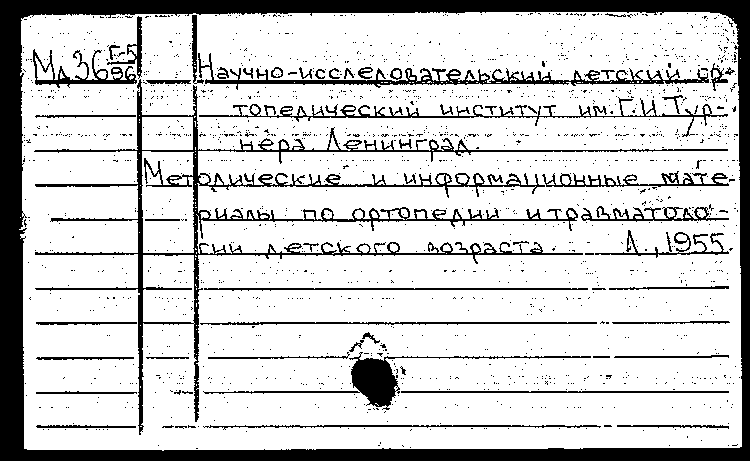 Мд 36 Г-5/96 Научно-исследовательский детский ор-
топедический институт им. Г.И. Тур-
нера. Ленинград.
Методические и информационные мате-
риалы по ортопедии и травматоло-
гии детского возраста. Л., 1955.